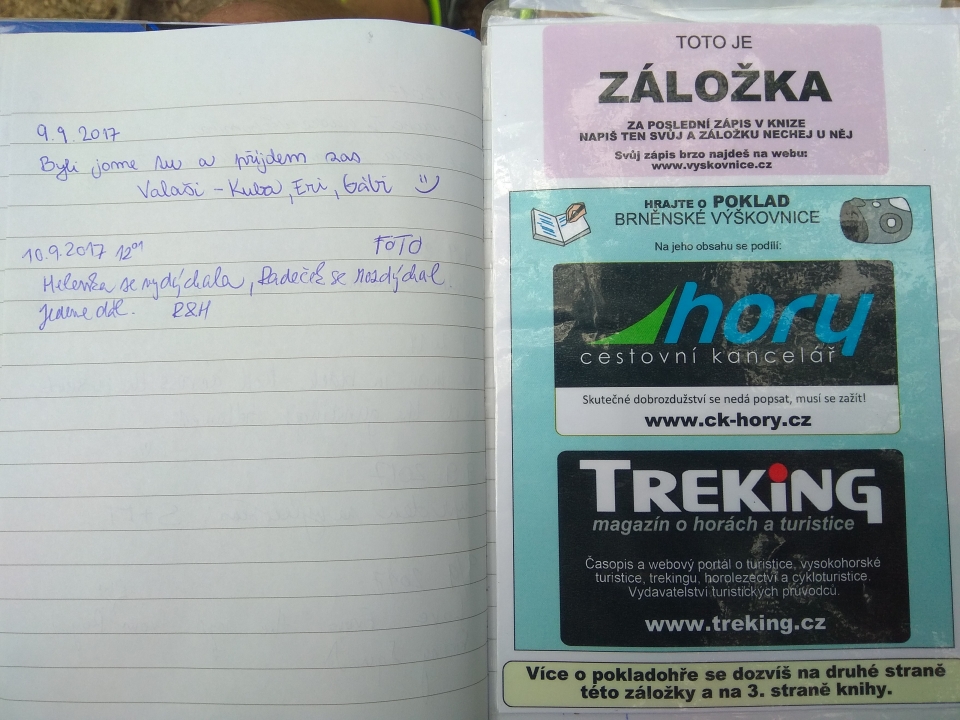 9.9.2017
Byli jsme tu a přijdem zas
Valaši - Kuba, Eri, Gábi
10.9.2017 12⁰¹ FOTO
Helenka se vydýchala, Radeček se nezdýchal.
Jedeme dál. R&H
TOTO JE
ZÁLOŽKA
ZA POSLEDNÍ ZÁPIS V KNIZE
NAPIŠ TEN SVŮJ A ZÁLOŽKU NECHEJ U NĚJ
Svůj zápis brzo najdeš na webu:
www.vyskovnice.cz
HRAJTE O POKLAD
BRNĚNSKÉ VÝŠKOVNICE
Na jeho obsahu se podílí:
hory
cestovní kancelář
Skutečné dobrozdužství se nedá popsat, musí se zažít!
www.ck-hory.cz
TREKING
magazín o horách a turistice
Časopis a webový portál o turistice, vysokohorské
turistice, trekingu, horolezectví a cykloturistice.
Vydavatelství turistických průvodců.
www.treking.cz
Více o pokladohře se dozvíš na druhé straně
této záložky a na 3. straně knihy.